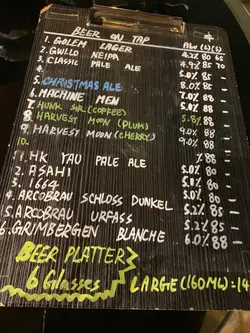 BEER ON TAP
ABV (L) (S)
1. GOLEM LAGER 4.2% 80 65
2. GWULO NEIPA 4.9% 85 70
3. CLASSIC PALE ALE
4.
5. CHRISTMAS ALE 8.0% 85 -
6. MACHINE MEN 5.0% 85 -
7. HUNK SIR (COFFEE) 7.0% 88 -
8. HARVEST MOON (PLUM) 5.8% 88 -
9. HARVEST MOON (CHERRY) 9.0% 88 -
10.
1. HK YAU PALE ALE % 88 -
2. ASAHI 5.0% 80 -
3. 1664 5.0% 80 -
4. ARCOBRAU SCHLOSS DUNKEL 5.2% 85 -
5. ARCOBRAU URFASS 5.2% 85 -
6. GRIMBERGEN BLANCHE 6.0% 88 -
BEER PLATTER
6 Glasses
LARGE (160ML) = 14